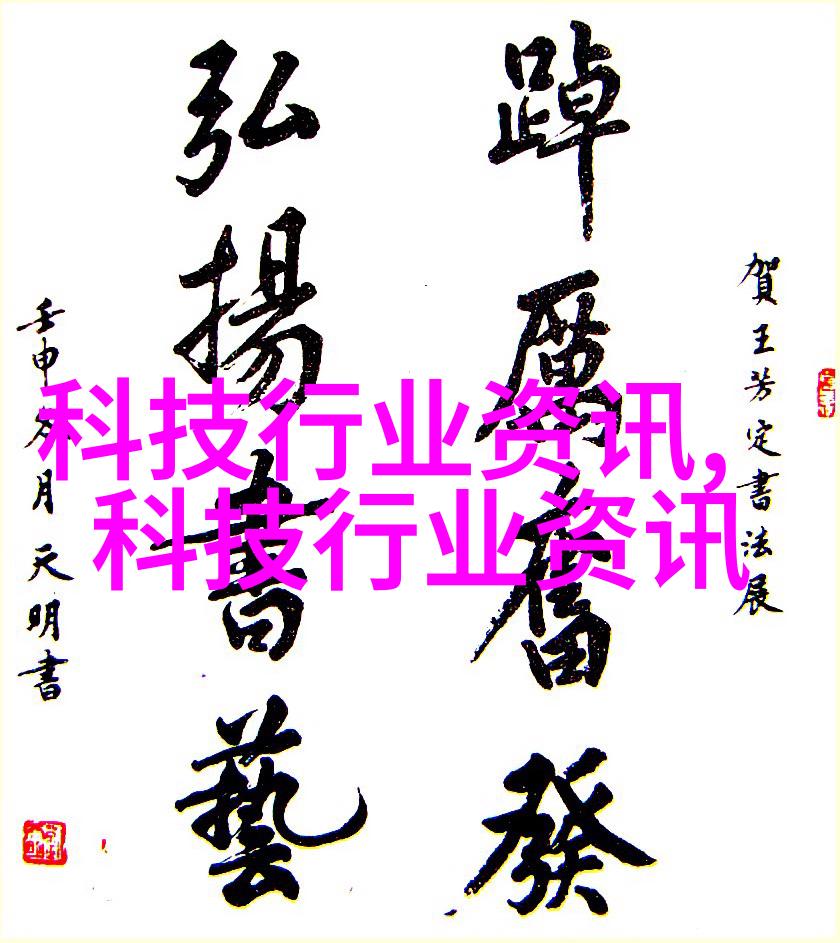 賀王芳定書法展
踔厲奮發
弘揚書藝
壬申冬月天明書
科技行业资讯,
科技行业资讯